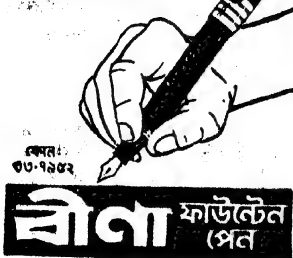 ফোন:
৩৩-৭৯৫২
বীণা ফাউন্টেন
পেন